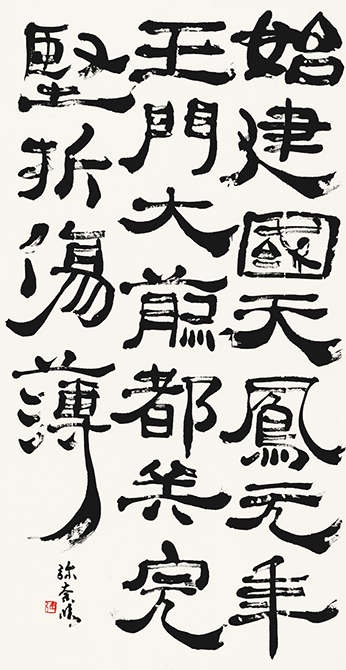 始建國天鳳元年
玉門大煎都兵完
堅折傷薄
弥奈